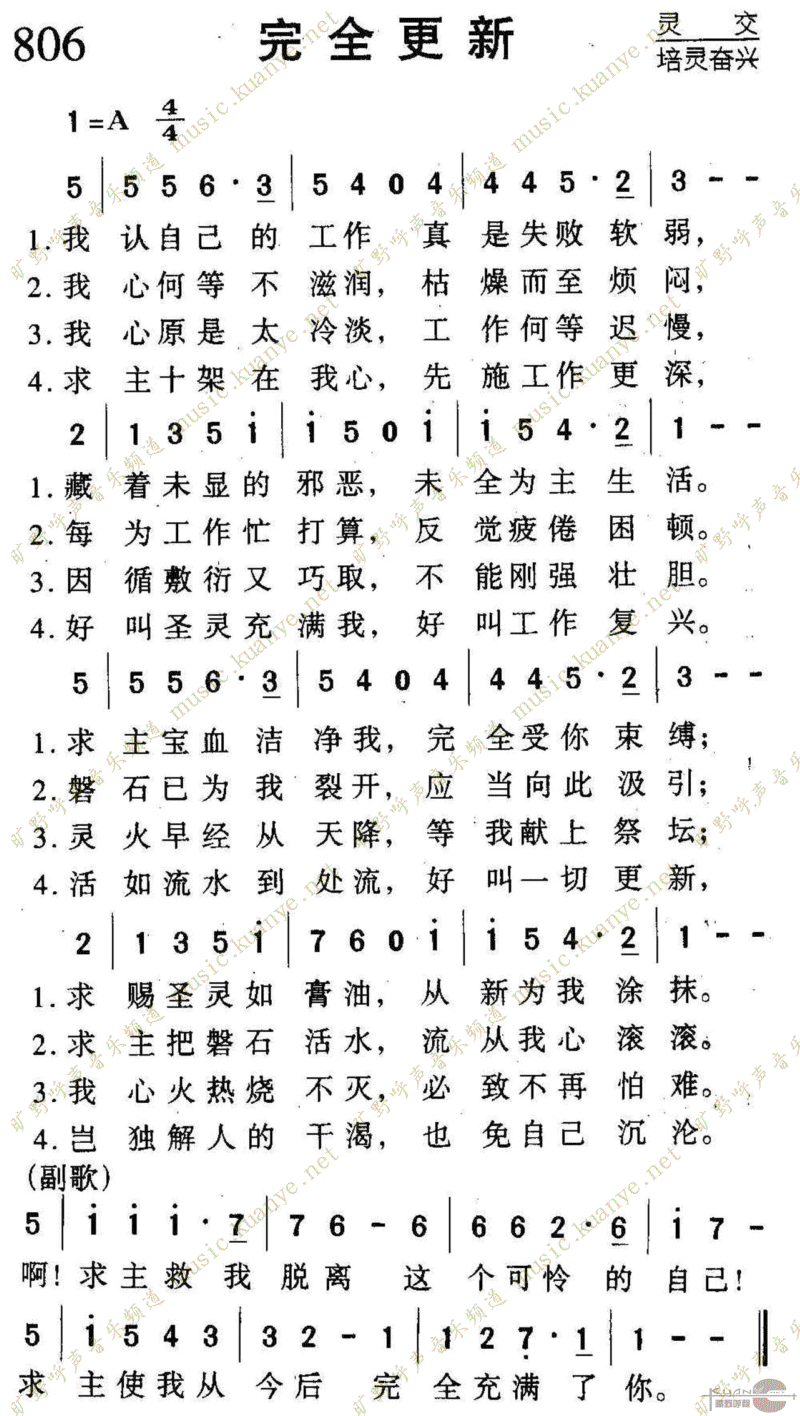 806 完全更新 灵交
培灵奋兴
1=A 4/4
5 | 5 5 6 · 3 | 5 4 0 4 | 4 4 5 · 2 | 3 - -
1.我 认自己的 工作 真 是失败软弱,
2.我 心何等不 滋润,枯 燥而至烦闷,
3.我 心原是太 冷淡,工 作何等迟慢,
4.求 主十架在 我心,先 施工作更深,
2 | 1 3 5 i | i 5 0 i | i 5 4 · 2 | 1 - -
1.藏 着未显的 邪恶,未 全为主生活。
2.每 为工作忙 打算,反 觉疲倦困顿。
3.因 循敷衍又 巧取,不 能刚强壮胆。
4.好 叫圣灵充 满我,好 叫工作复兴。
5 | 5 5 6 · 3 | 5 4 0 4 | 4 4 5 · 2 | 3 - -
1.求 主宝血洁 净我,完 全受你束缚;
2.磐 石已为我 裂开,应 当向此汲引;
3.灵 火早经从 天降,等 我献上祭坛;
4.活 如流水到 处流,好 叫一切更新,
2 | 1 3 5 i | 7 6 0 i | i 5 4 · 2 | 1 - -
1.求 赐圣灵如 膏油,从 新为我涂抹。
2.求 主把磐石 活水,流 从我心滚滚。
3.我 心火热烧 不灭,必 致不再怕难。
4.岂 独解人的 干渴,也 免自己沉沦。
(副歌)
5 | i i i · 7 | 7 6 - 6 | 6 6 2 · 6 | i 7 -
啊!求主救我脱离 这 个可怜的自己!
5 | i 5 4 3 | 3 2 - 1 | 1 2 7 · 1 | 1 - - ‖
求 主使我从 今后 完 全充满了你。
旷野呼声音乐频道 music.kuanye.net